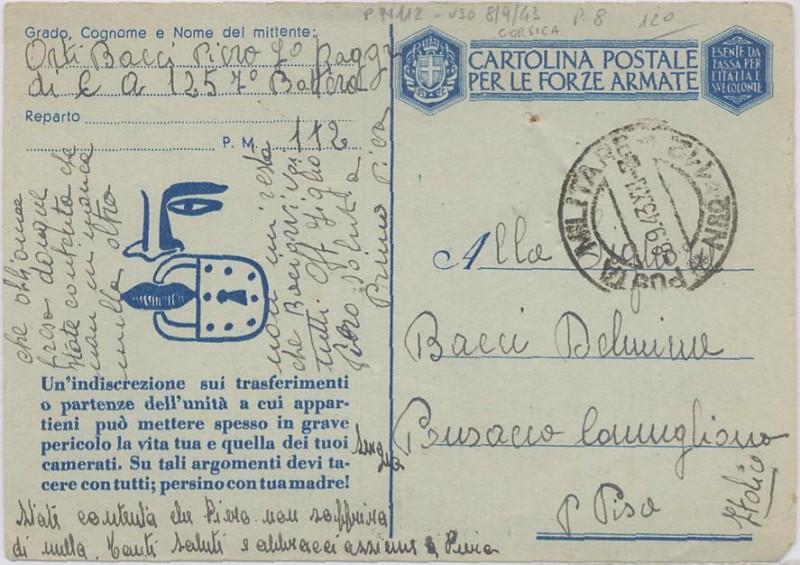 P 74112 - U30 8/9/43 P. 8 120
CORSICA
Grado, Cognome e Nome del mittente:
Orti Bacci Piero 7º Raggr
di C A 125 7º Batteria
Reparto
P. M. 112
CARTOLINA POSTALE
PER LE FORZE ARMATE
ESENTE DA
TASSA PER
L'ITALIA E
SVE COLONIE
POSTA MILITARE N. 112
8.9.43.XXI
Alla
Bacci Delmine
Ponsacco Camugliano
P Pisa
Italia
che
preso
state contenta che
non mi manca
nulla altro
non mi resta
che
tutti Off figlio
Piero saluti a
Primo Pisa
Un'indiscrezione sui trasferimenti
o partenze dell'unità a cui appar-
tieni può mettere spesso in grave
pericolo la vita tua e quella dei tuoi
camerati. Su tali argomenti devi ta-
cere con tutti; persino con tua madre!
State contenta che Piero non soffrira
di nulla. Tanti saluti e abbracci assieme a